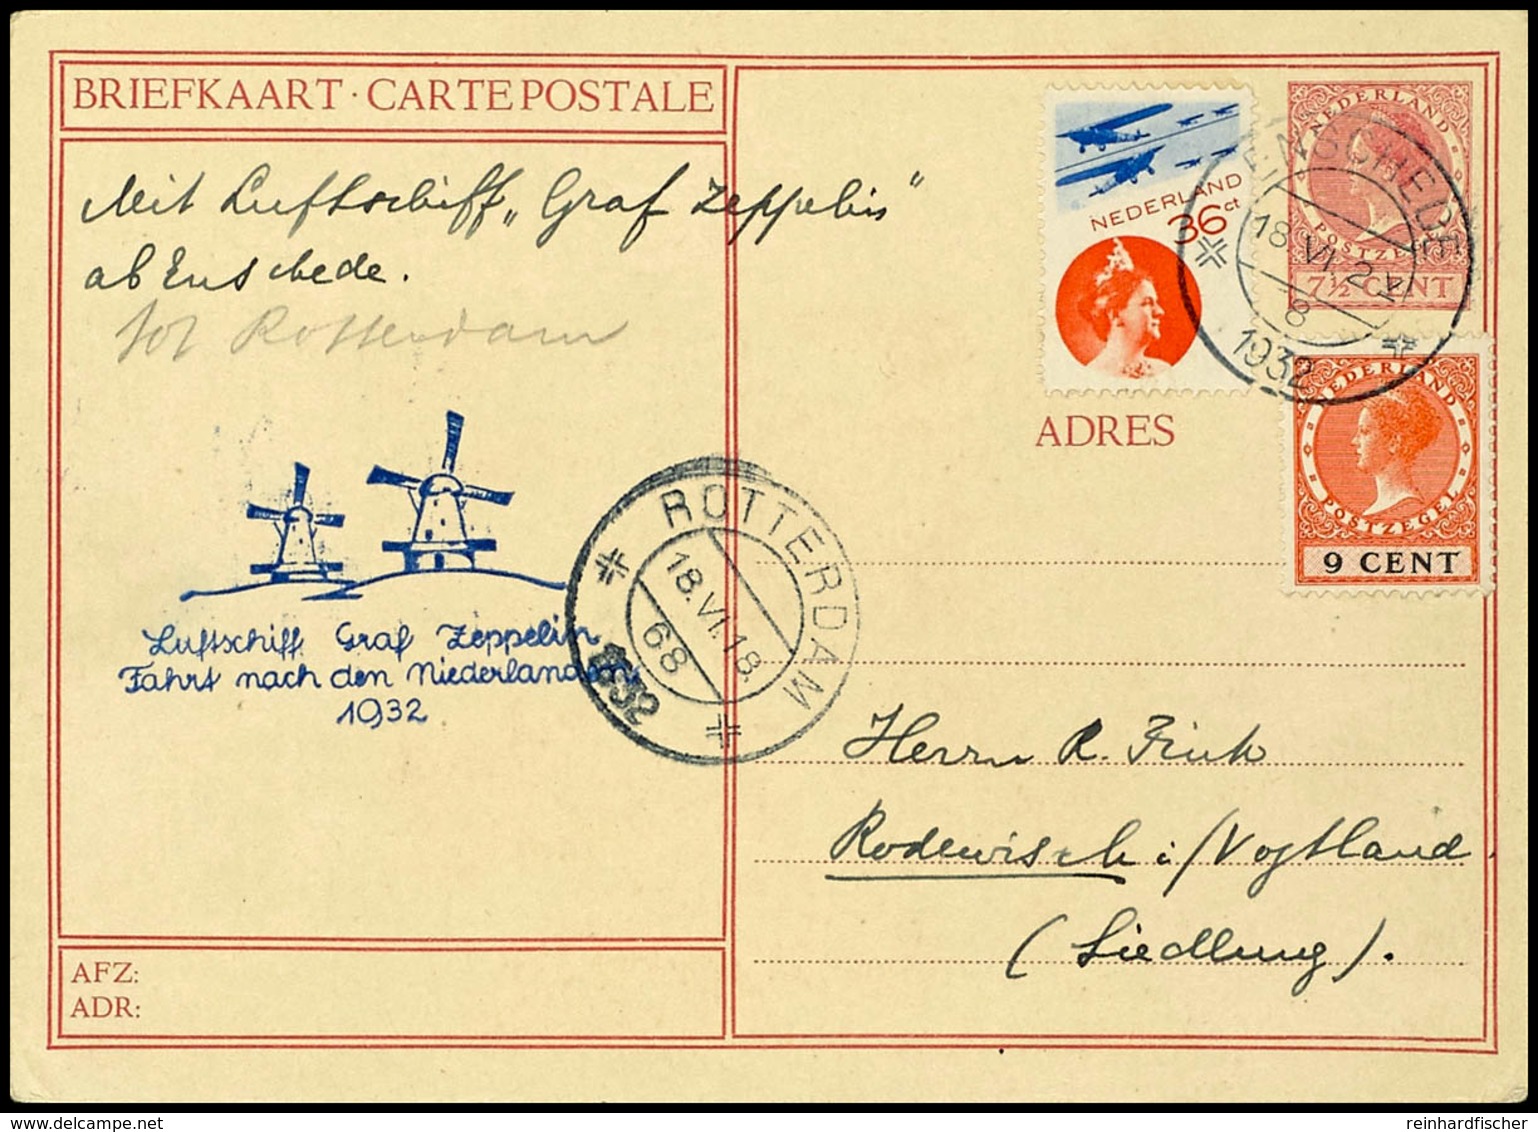 BRIEFKAART · CARTE POSTALE
Mit Luftschiff „Graf Zeppelin“
ab Enschede.
tot Rotterdam
NEDERLAND
36 ct
NEDERLAND
POSTZEGEL
7½ CENT
ENSCHEDE
18.VI.2
8
1932
NEDERLAND
POSTZEGEL
9 CENT
ADRES
ROTTERDAM
18.VI.18
68
1932
Luftschiff Graf Zeppelin
Fahrt nach den Niederlanden
1932
Herrn R. Fink
Rodewisch i/Vogtland.
(Siedlung).
AFZ:
ADR:
delcampe.net
reinhardfischer